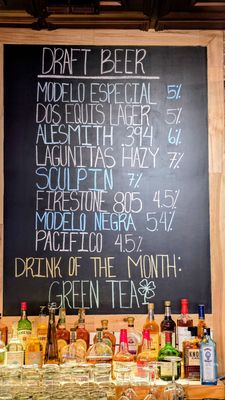 DRAFT BEER
MODELO ESPECIAL 5%
DOS EQUIS LAGER 5%
ALESMITH .394 6%
LAGUNITAS HAZY 7%
SCULPIN 7%
FIRESTONE 805 4.5%
MODELO NEGRA 5.4%
PACIFICO 4.5%
DRINK OF THE MONTH:
GREEN TEA